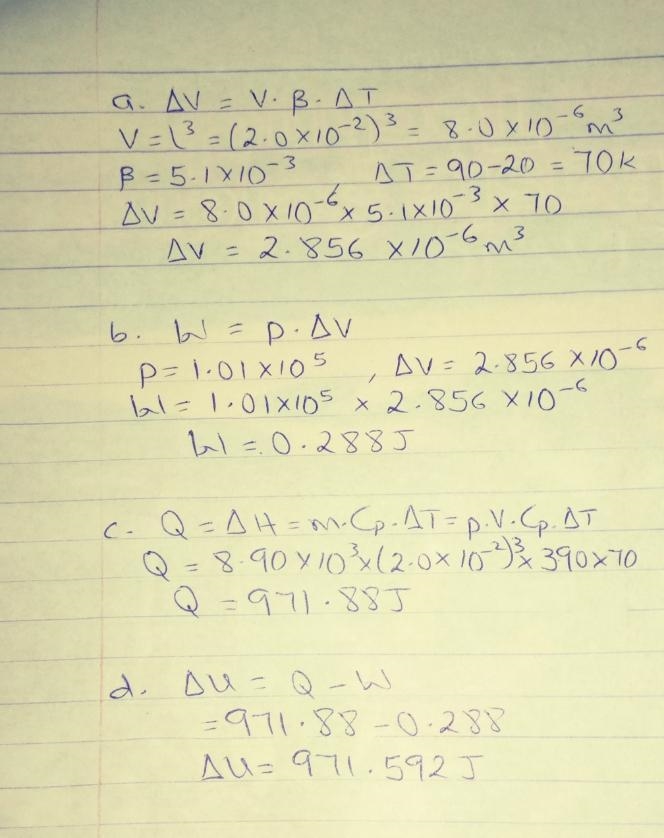 a. ΔV = V. β. ΔT
V = l³ = (2.0 × 10⁻²)³ = 8.0 × 10⁻⁶ m³
β = 5.1 × 10⁻³ ΔT = 90-20 = 70k
ΔV = 8.0 × 10⁻⁶ × 5.1 × 10⁻³ × 70
ΔV = 2.856 × 10⁻⁶ m³
b. W = p. ΔV
p = 1.01 × 10⁵ , ΔV = 2.856 × 10⁻⁶
W = 1.01 × 10⁵ × 2.856 × 10⁻⁶
W = 0.288J
c. Q = ΔH = m. Cp. ΔT = p. V. Cp. ΔT
Q = 8.90 × 10³ × (2.0 × 10⁻²)³ × 390 × 70
Q = 971.88J
d. ΔU = Q - W
= 971.88 - 0.288
ΔU = 971.592 J